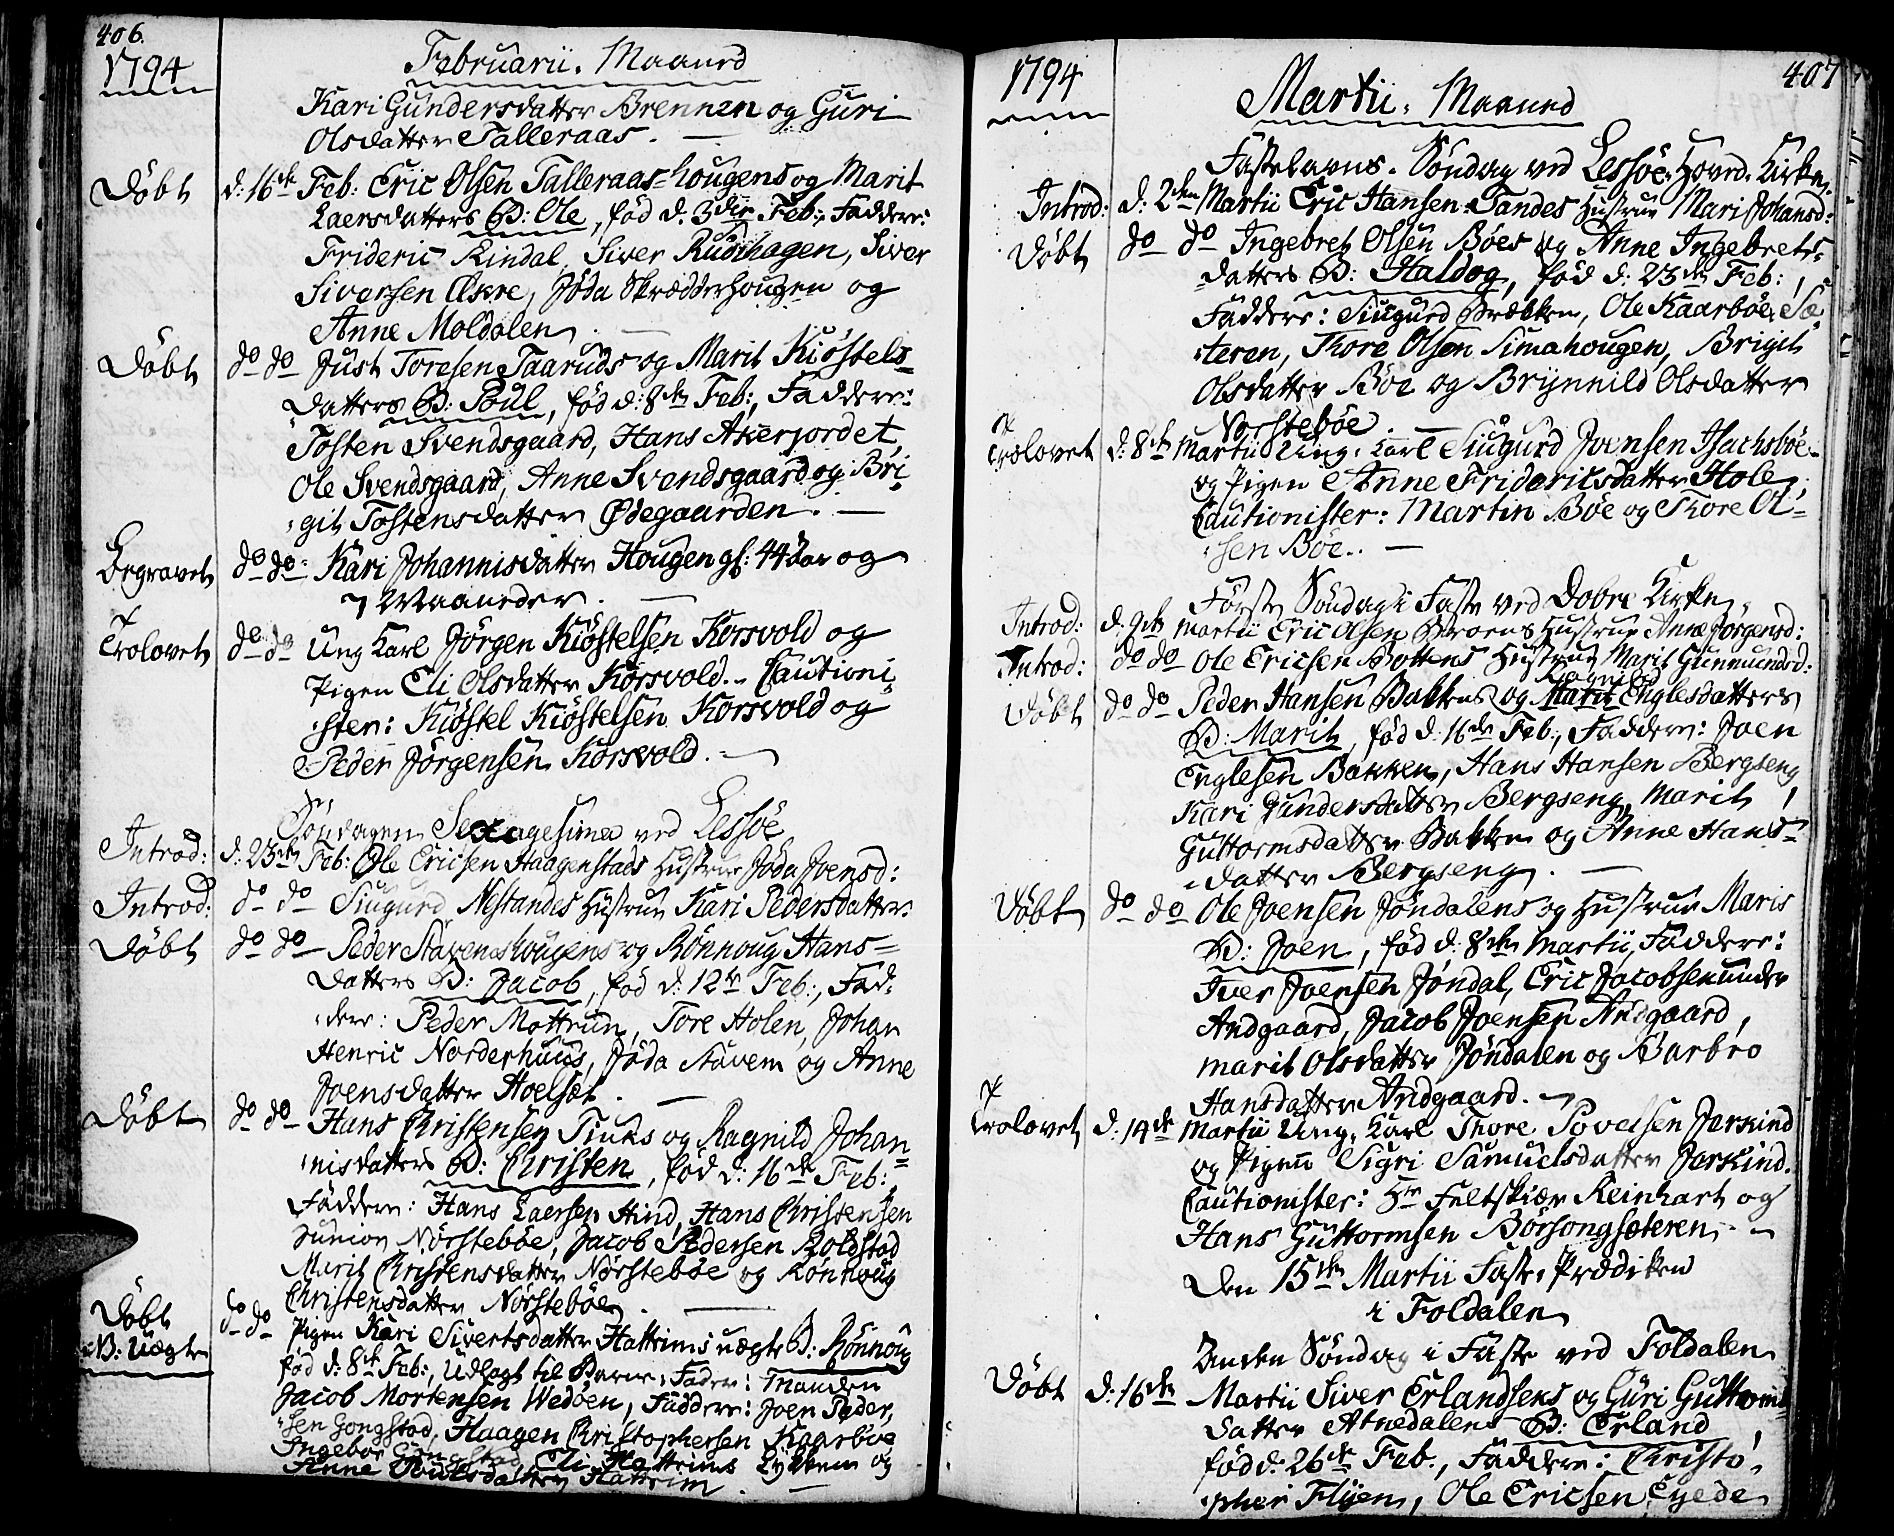 406.
1794
Februarii. Maaned
Kari Gundersdatter Brennen og Guri
Olsdatter Talleraas. —
Döbt d: 16de Feb: Eric Olsen Talleraas-hougens og Marit
Laersdatters B: Ole, fød d. 3die Feb:, Faddere:
Frideric Kindal, Siver Rudihagen, Siver
Siversen Økre, Jøda Skrædderhougen og
Anne Moldalen. —
Döbt do do Just Toresen Taaruds og Marit Kiøstels-
datters B: Poul, fød d: 8de Feb:, Faddere:
Tosten Svendsgaard, Hans Akerjordet,
Ole Svendsgaard, Anne Svendsgaard og Bri-
git Tostensdatter Ødegaarden. —
Begravet do do Kari Johannisdatter Hougen gl: 44 Aar og
7 Maaneder. —
Trolovet do do Ung Karl Jörgen Kiöstelsen Korsvold og
Pigen Eli Olsdatter Korsvold. Cautioni-
ster: Kiöstel Kiöstelsen Korsvold og
Peder Jörgensen Korsvold. —
Söndagen Sexagesima ved Lessöe
Introd: d: 23de Feb: Ole Ericsen Haagenstads Hustrue Jøda Joensd:
Introd: do do Siugurd Nestandes Hustrue Kari Pedersdatter.
Döbt do do Peder Stavenshougens og Rönnoug Hans-
datters B: Jacob, fød d: 12te Feb:, Fad-
dere: Peder Mottrun, Tore Holen, Johan
Henric Norderhuus, Jøda Stavem og Anne
Joensdatter Hoelset. —
Döbt do do Hans Christensen Tinks og Ragnild Johan-
nisdatters B: Christen, fød d: 16de Feb:,
Faddere: Hans Laersen Hind, Hans Christensen
Junior Nörsteböe, Jacob Pedersen Roldstad
Marit Christensdatter Nörsteböe og Rönnoug
Christensdatter Nörsteböe. —
Döbt do do Pigen Kari Sivertsdatter Hattrims uægte B: Rönnoug
B: Uægte
fød d: 8de Feb:, Udlagt til Barne-Fader: Manden
Jacob Mortensen Wedöen, Faddere: Joen Peder-
sen Gongstad, Haagen Christophersen Kaarböe
Ingebor Gongstad, Eli Hattrims Lykkem og
Anne Hattrim. —
1794
407
Martii. Maaned
Fastelavns. Söndag ved Lessöe-Hoved-Kirke.
Introd: d: 2den Martii Eric Hansen Tandes Hustrue Mari Johansd:
Döbt do do Ingebret Olsen Böes og Anne Ingebrets-
datters B: Haldog, fød d: 23de Feb:,
Faddere: Siugurd Brækken, Ole Kaarböe Sæ-
teren, Thore Olsen Simahougen, Brigit
Olsdatter Böe og Brynnild Olsdatter
Norsteböe. —
Trolovet d: 8de Martii Ung-Karl Siugurd Joensen Isachsböe
og Pigen Anne Fridericsdatter Hole,
Cautionister: Martin Böe og Thore Ol-
sen Böe. —
Förste Söndag i Faste ved Dovre Kirke
Introd: d. 9de Martii Eric Olsen Hustrue Anne Jörgensd:
Introd: do do Ole Ericsen Bottens Hustrue Marit Gunmundsd:
Döbt do do Peder Hansen Bakkens og Marit Ragnild Englesdatters
B: Marit, fød d: 16de Feb:, Faddere: Joen
Englesen Bakken, Hans Hansen Bergseng,
Kari Gundersdatter Bergseng, Marit
Guttormsdatter Bakken og Anne Hans-
datter Bergseng. —
Döbt do do Ole Joensen Jöndalens og Hustrue Maris
B: Joen, fød d: 8de Martii, Faddere:
Iver Joensen Jöndal, Eric Jacobsen under
Andgaard, Jacob Joensen Andgaard,
Marit Olsdatter Jöndalen og Barbro
Hansdatter Andgaard. —
Trolovet d: 14de Martii Ung-Karl Thore Povelsen Jerkind
og Pigen Sigri Samuelsdatter Jerkind.
Cautionister: Hr Feltskiær Reinhart og
Hans Guttormsen Börsongsæteren. —
Den 15de Martii Faste-Prædiken
i Foldalen
Anden Söndag i Faste ved Foldalen
Döbt d: 16de Martii Siver Erlandsens og Guri Guttorms-
datter Atnedalens B: Erland,
fød d: 26de Feb., Faddere: Christo-
pher Flyen, Ole Ericsen Eyede